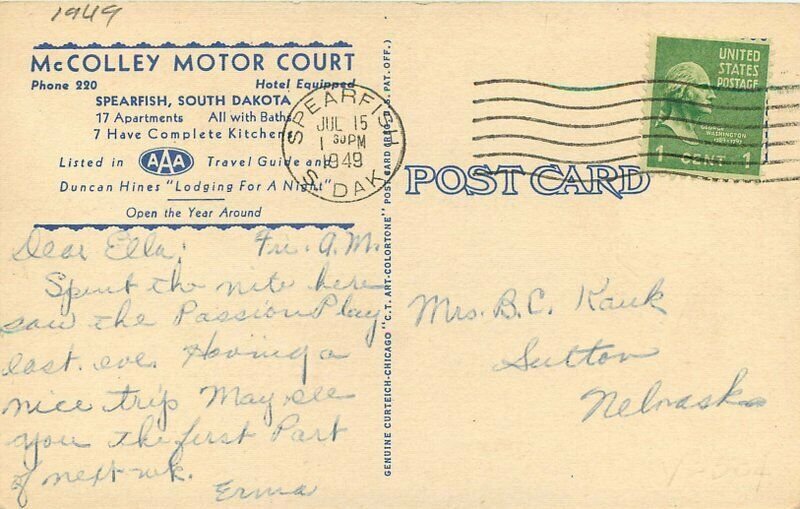 1949
McCOLLEY MOTOR COURT
Phone 220 Hotel Equipped
SPEARFISH, SOUTH DAKOTA
17 Apartments All with Baths
7 Have Complete Kitchens
Listed in AAA Travel Guide and
Duncan Hines "Lodging For A Night"
Open the Year Around
Dear Ella; Fri. A.M.
Spent the nite here
saw the Passion Play
last. eve. Having a
nice trip May see
you the first Part
of next wk.
Erma
GENUINE CURTEICH-CHICAGO "C.T. ART-COLORTONE" POST CARD (REG. U.S. PAT. OFF.)
SPEARFISH
JUL 15
1 30 PM
1949
S. DAK.
UNITED
STATES
POSTAGE
GEORGE
WASHINGTON
1789-1797
1 CENT 1
POST CARD
Mrs. B.C. Kauk
Sutton
Nebraska